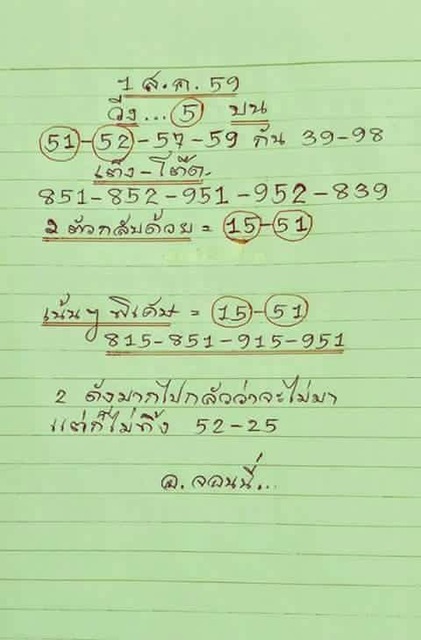 1 ส.ค. 59
วิ่ง... 5 บน
51-52-57-59 กัน 39-98
เต็ง-โต๊ด
851-852-951-952-839
2 ตัวกลับด้วย = 15-51
เน้นๆ พิเศษ = 15-51
815-851-915-951
2 ดังมากไปกลัวว่าจะไม่มา
แต่ก็ไม่ทิ้ง 52-25
อ. จอนนี่...